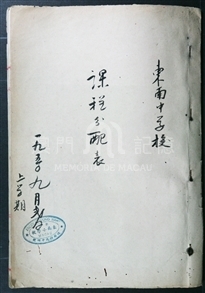 東南中學校
課程分配表
一九五〇九月
上学期
MEMÓRIA DE MACAU